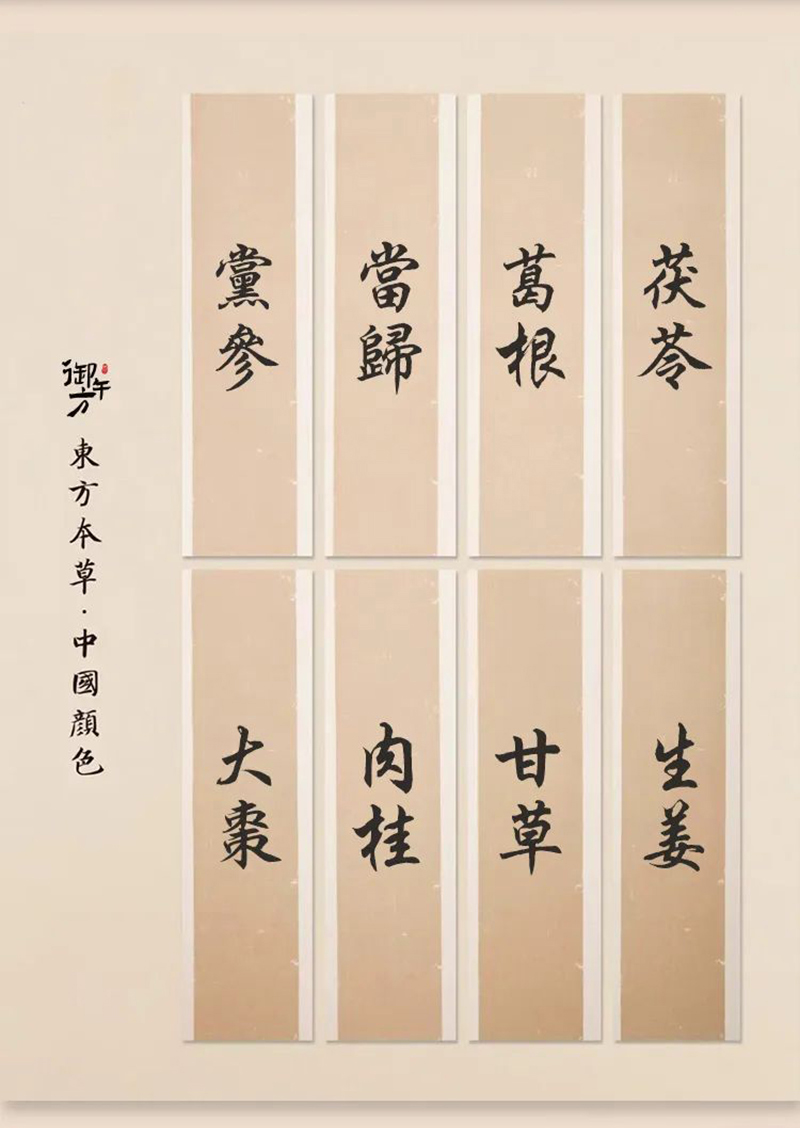 茯苓
葛根
當歸
黨參
生姜
甘草
肉桂
大棗
御午方
東方本草·中國顔色